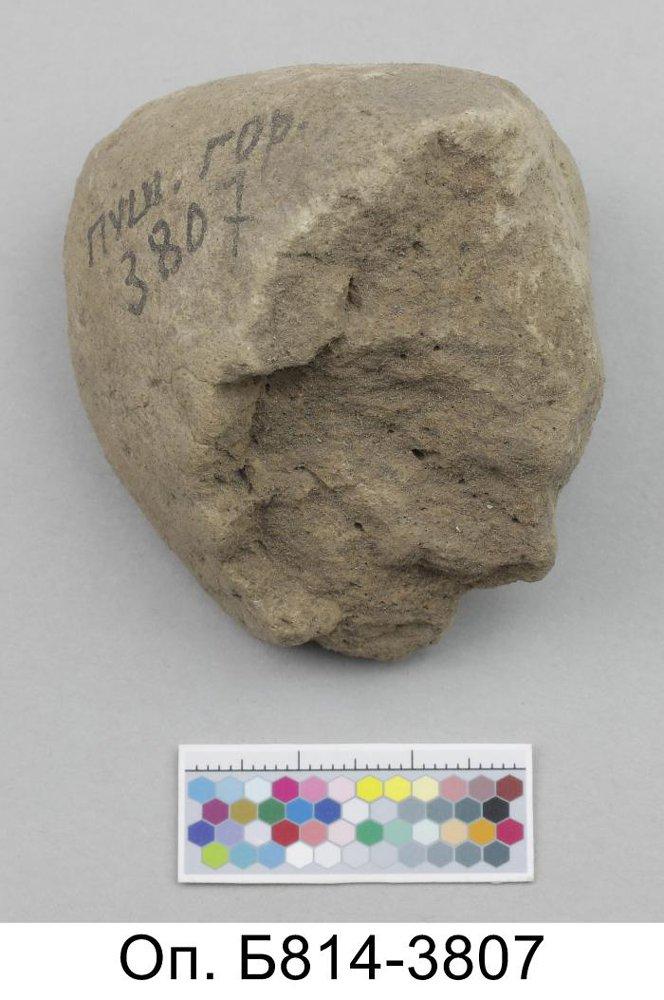 пуш. гор.
3807
Оп. Б814-3807